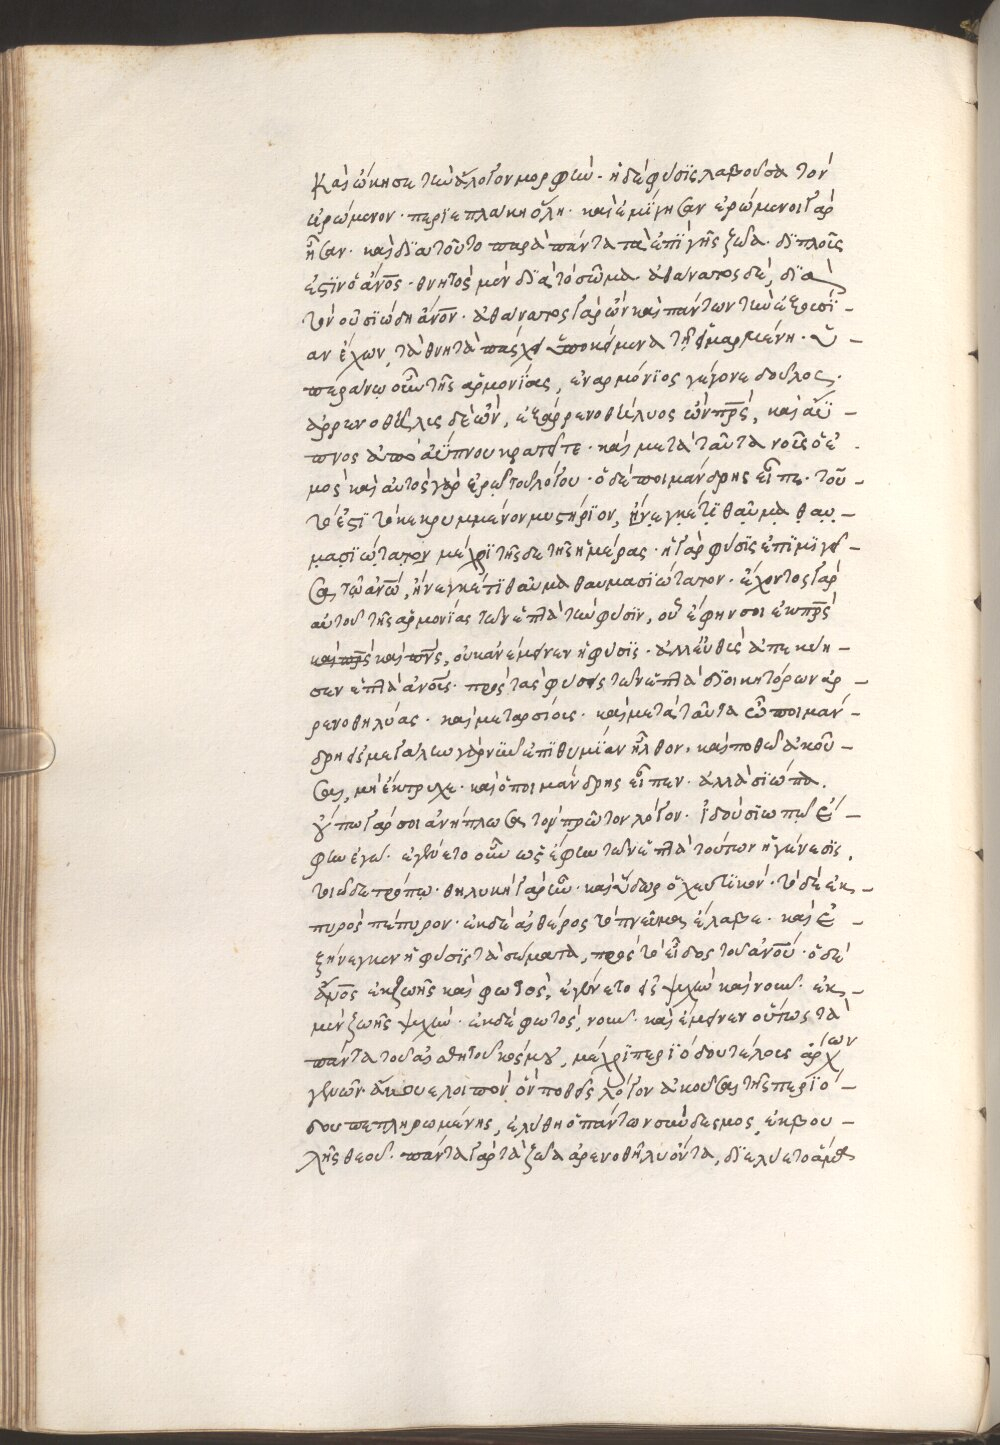 καὶ ᾤκησε τὴν ἄλογον μορφήν· ἡ δὲ φύσις λαβοῦσα τὸν
ἐρώμενον· περιεπλάκη ὅλη· καὶ ἐμίγησαν ἐρώμενοι γὰρ
ἦσαν· καὶ διὰ τοῦτο παρὰ πάντα τὰ ἐπὶ γῆς ζῶα· διπλοῦς
ἐςὶν ὁ ἄνος· θνητὸς μὲν διὰ τὸ σῶμα· ἀθάνατος δὲ, διὰ
τὸν οὐσιώδη ἄνον· ἀθάνατος γὰρ ὢν καὶ πάντων τὴν ἐξουσί-
αν ἔχων, τὰ θνητὰ πάσχει ὑποκείμενα τῇ εἱμαρμένῃ· ὑ-
περάνω οὖν τῆς ἁρμονίας, ἐναρμόνιος γέγονε δοῦλος·
ἀρρενόθηλυς δὲ ὢν, ἐξ ἀρρενοθήλυος ὢν πρς, καὶ ἄϋ-
πνος ἀπὸ ἀΰπνου κρατεῖται· καὶ μετὰ ταῦτα νοῦς ὁ ἐ-
μὸς καὶ αὐτὸς γὰρ ἐρῶ τοῦ λόγου· ὁ δὲ ποιμάνδρης εἶπε· τοῦ-
τό ἐςι τὸ κεκρυμμένον μυςήριον, ἤνεγκέ τι θαῦμα θαυ-
μασιώτατον μέχρι τῆσδε τῆς ἡμέρας· ἡ γὰρ φύσις ἐπιμιγεῖ-
σα τῷ ἀνῳ, ἤνεγκέ τι θαῦμα θαυμασιώτατον· ἔχοντος γὰρ
αὐτοῦ τῆς ἁρμονίας τῶν ἑπτὰ τὴν φύσιν, οὓς ἔφην σοι ἐκ πρς
καὶ πρς καὶ πνς, οὐκ ἀνέμεινεν ἡ φύσις· ἀλλ' εὐθὺς ἀπεκύη-
σεν ἑπτὰ ἀνους· πρὸς τὰς φύσεις τῶν ἑπτὰ διοικητόρων ἀρ-
ρενοθηλύας· καὶ μεταρσίους· καὶ μετὰ ταῦτα ὦ ποιμάν-
δρη εἰς μεγάλην γὰρ νῦν ἐπιθυμίαν ἦλθον· καὶ ποθῶ ἀκοῦ-
σαι, μὴ ἔκτρεχε· καὶ ὁ ποιμάνδρης εἶπεν· ἀλλὰ σιώπα.
οὔπω γάρ σοι ἀνήπλωσα τὸν πρῶτον λόγον· ἰδοὺ σιωπῶ ἔ-
φην ἐγώ· ἐγένετο οὖν ὡς ἔφην τῶν ἑπτὰ τούτων ἡ γένεσις,
τοιῶδε τρόπῳ· θηλυκὴ γὰρ ἦν· καὶ ὕδωρ ὀχευτικόν· τὸ δὲ ἐκ-
πυρὸς πέπυρον· ἐκ δὲ αἰθέρος τὸ πνεῦμα ἔλαβε· καὶ ἐ-
ξήνεγκεν ἡ φύσις τὰ σώματα, πρὸς τὸ εἶδος τοῦ ἀνου· ὁ δὲ
ἄνος ἐκ ζωῆς καὶ φωτὸς, ἐγένετο εἰς ψυχὴν καὶ νοῦν· ἐκ-
μὲν ζωῆς ψυχὴν· ἐκ δὲ φωτὸς, νοῦν· καὶ ἔμεινεν οὕτως τὰ
πάντα τοῦ αἰσθητοῦ κόσμου, μέχρι περιόδου τέλους ἀρχῶν
γενῶν· ἄκουε λοιπὸν ὃν ποθεῖς λόγον ἀκοῦσαι τῆς περιό-
δου πεπληρωμένης, ἐλύθη ὁ πάντων σύνδεσμος, ἐκ βου-
λῆς θεοῦ· πάντα γὰρ τὰ ζῶα ἀρενοθήλυ ὄντα, διελύετο ἅμα